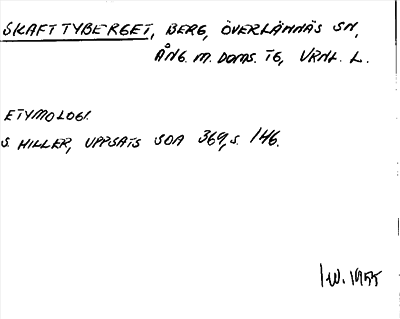 SKAFTTYBERGET, BERG, ÖVERLÄNNÄS SN,
ÅNG. M. DOMS. TG, VRNL. L.
ETYMOLOGI.
S. HILLER, UPPSATS SOA 369, S. 146.